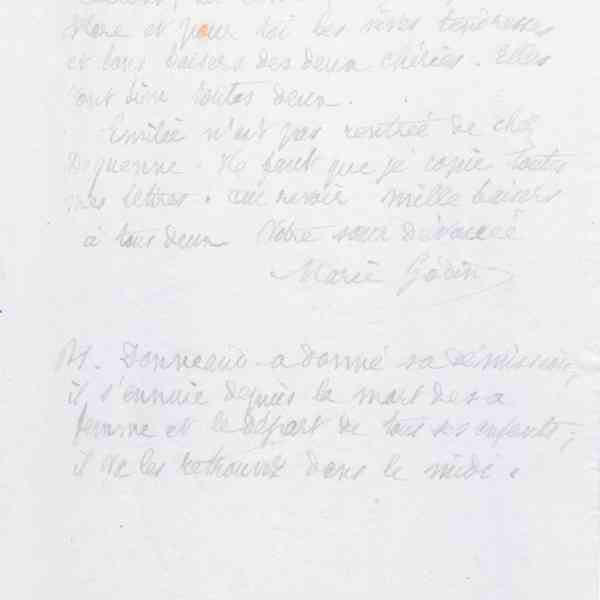 et pour toi les
et bons baisers des deux chéries. Elles
sont bien toutes deux.
Emilie n'est pas rentrée de chez
Dequenne. Il faut que je copie toutes
mes lettres. au revoir mille baisers
à tous deux Votre sœur dévouée
Marie
Donneaud a donné sa démission,
il s'ennuie depuis la mort de sa
femme et le départ de tous ses enfants ;
il va les retrouver dans le midi.